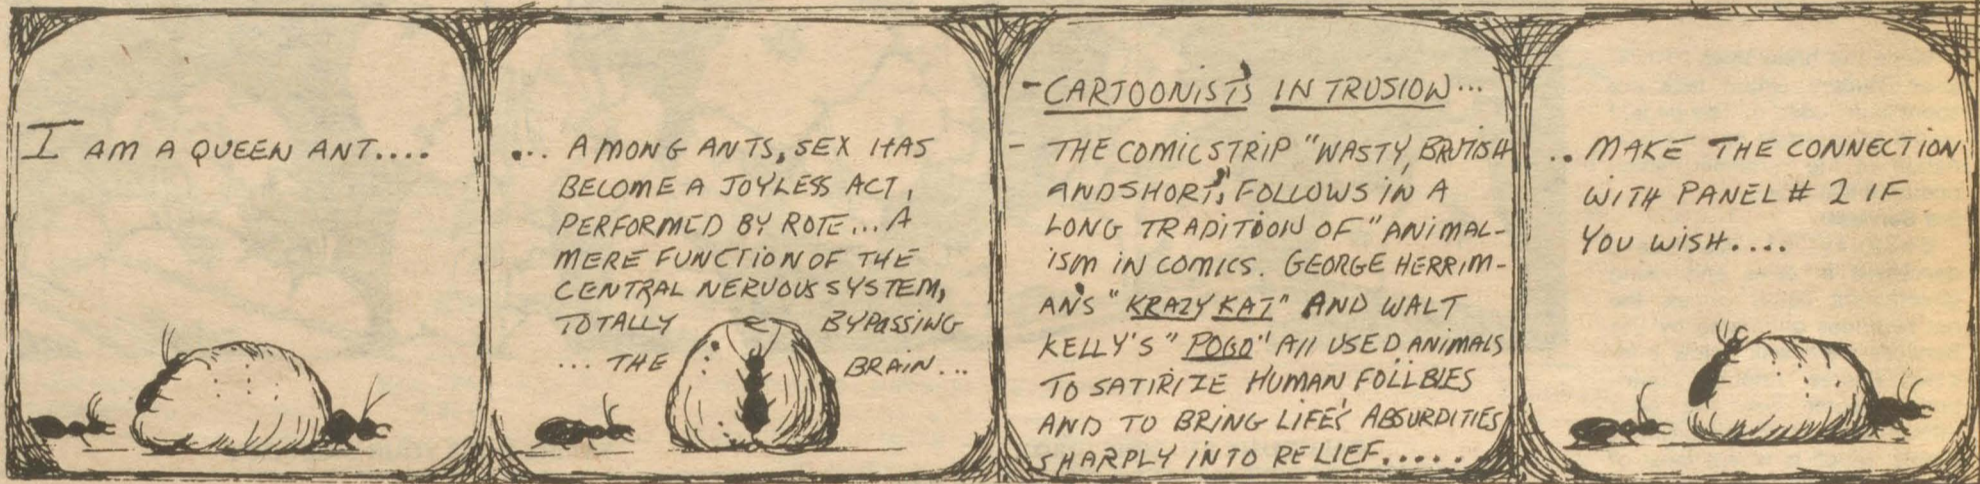 I AM A QUEEN ANT....
... AMONG ANTS, SEX HAS
BECOME A JOYLESS ACT,
PERFORMED BY ROTE... A
MERE FUNCTION OF THE
CENTRAL NERVOUS SYSTEM,
TOTALLY BYPASSING
... THE BRAIN...
- CARTOONIST'S INTRUSION...
- THE COMIC STRIP "WASTY, BRUTISH
AND SHORT", FOLLOWS IN A
LONG TRADITIOON OF "ANIMAL-
ISM IN COMICS. GEORGE HERRIM-
AN'S "KRAZY KAT" AND WALT
KELLY'S "POGO" All USED ANIMALS
TO SATIRIZE HUMAN FOLLBIES
AND TO BRING LIFE'S ABSURDITIES
SHARPLY INTO RELIEF.....
.. MAKE THE CONNECTION
WITH PANEL # 2 IF
YOU WISH....